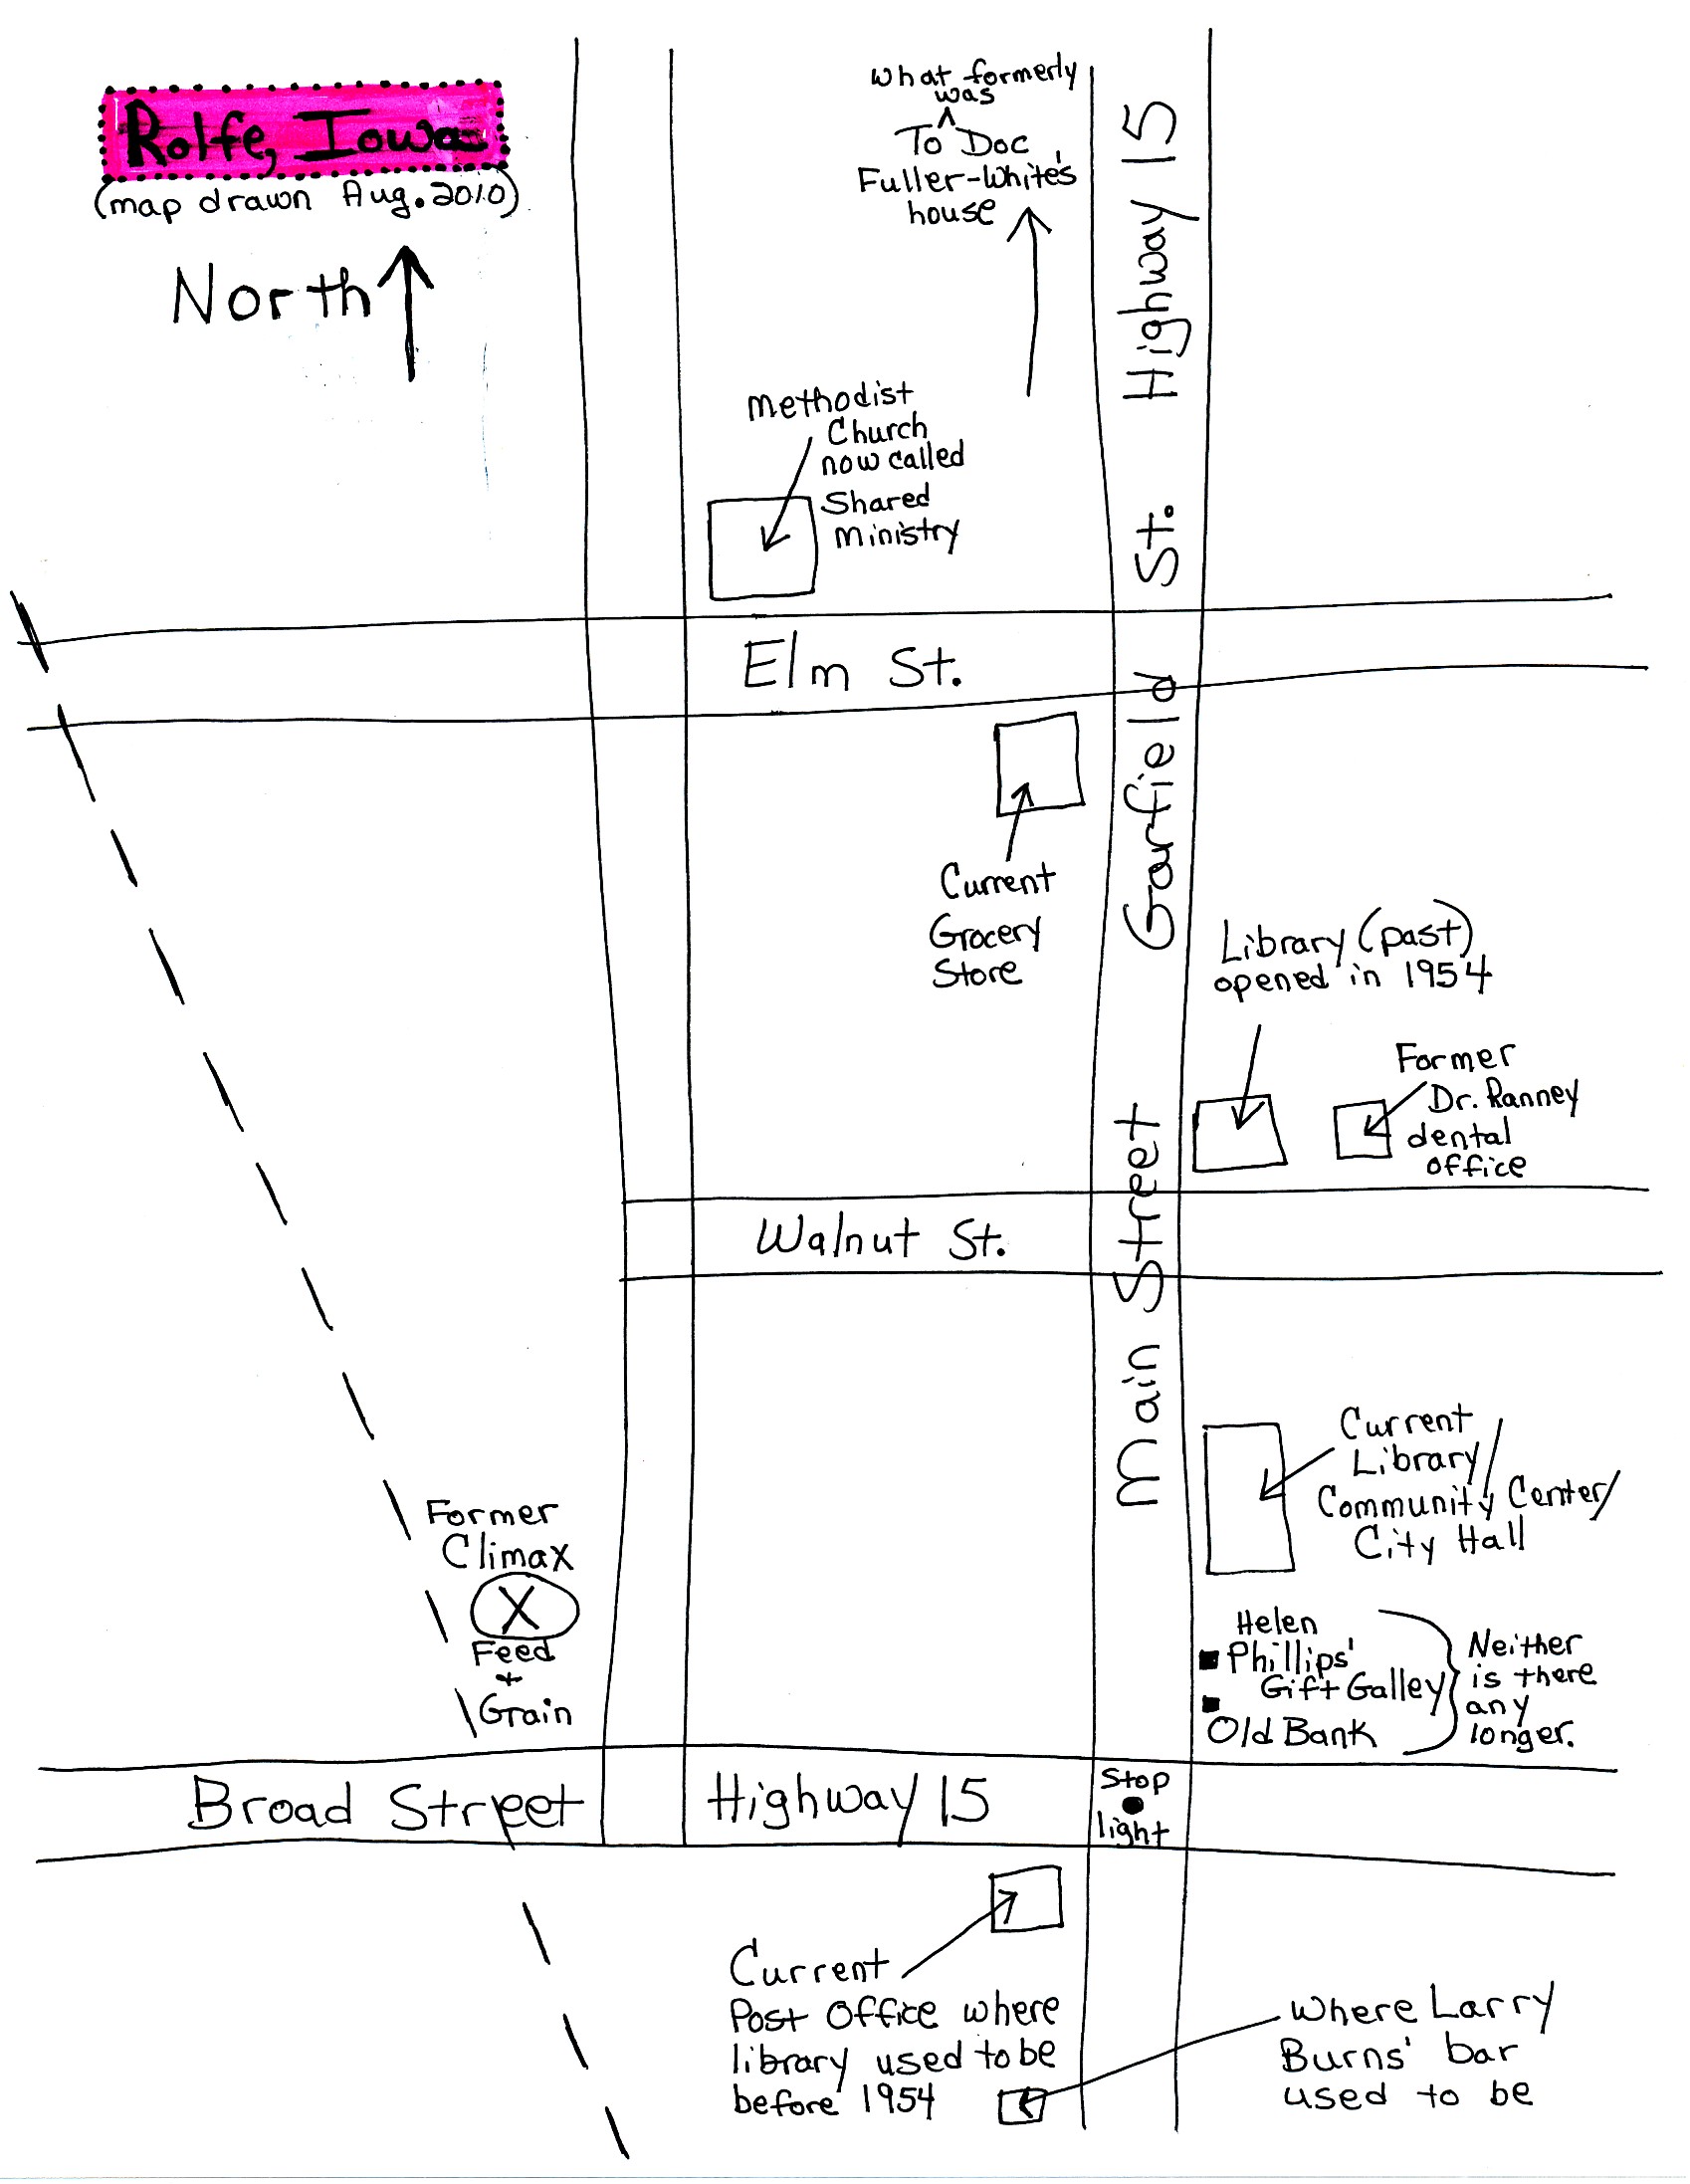 Rolfe, Iowa
(map drawn Aug. 2010)
North
What formerly
was
To Doc
Fuller-White's
house
Highway 15
Methodist
Church
now called
Shared
Ministry
St.
Elm St.
Garfield
Current
Grocery
Store
Library (past)
opened in 1954
Former
Dr. Ranney
dental
office
Walnut St.
Main Street
Current
Library/
Community Center/
City Hall
Former
Climax
X
Feed
+
Grain
Helen
Phillips'
Gift Galley
Old Bank
Neither
is there
any
longer.
Broad Street
Highway 15
Stop
light
Current
Post Office where
library used to be
before 1954
Where Larry
Burns' bar
used to be